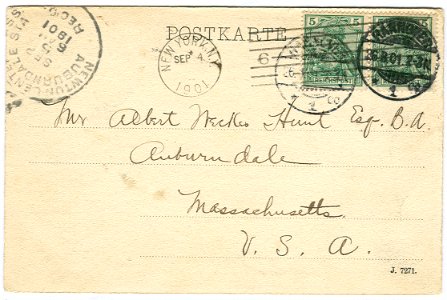 POSTKARTE
NEWTON CENTRE STA
AUBURNDALE
SEP
5
1901
REC'D
NEW YORK, N.Y.
SEP 4
1901
6
5 5
HANNOVER
26.8.01
1
Mr Albert Weekes Hunt Esq. B.A.
Auburndale
Massachusetts
U. S. A.
J. 7271.